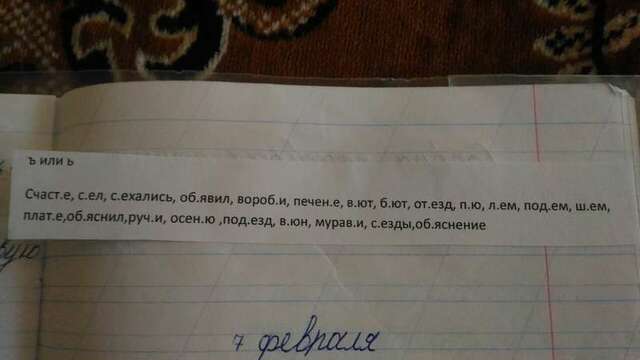 ъ или ь
Счаст.е, с.ел, с.ехались, об.явил, вороб.и, печен.е, в.ют, б.ют, от.езд, п.ю, л.ем, под.ем, ш.ем,
плат.е,об.яснил,руч.и, осен.ю ,под.езд, в.юн, мурав.и, с.езды,об.яснение
7 февраля